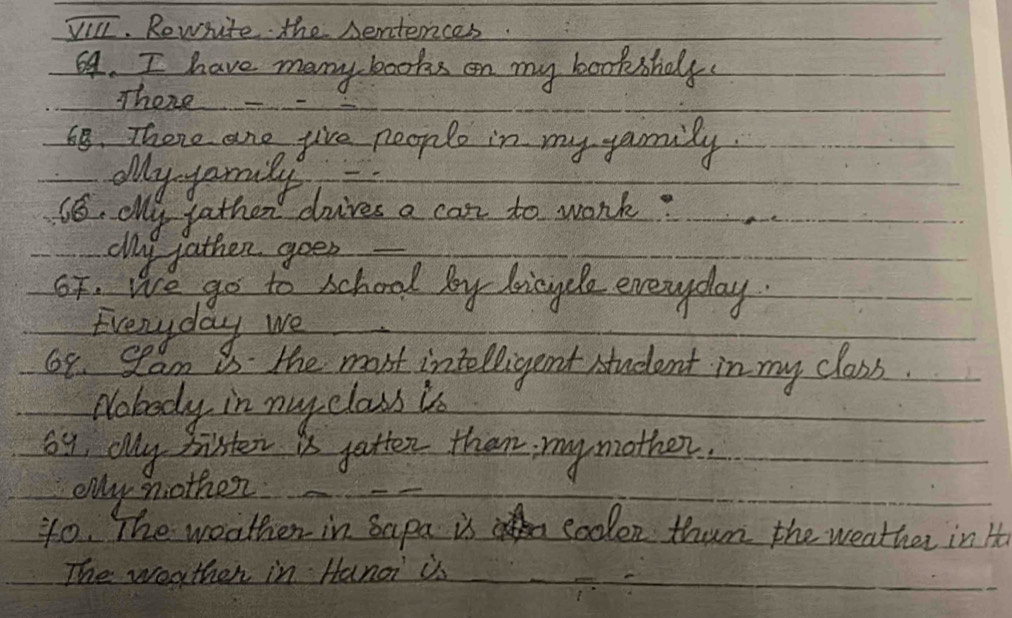 VIII. Rewrite the sentences.
64. I have many books on my bookshelf.
There - - -
65. There are five people in my family.
My family - -
66. My father drives a car to work.
My father goes -
67. We go to school by bicycle everyday.
Everyday we
68. Lan is the most intelligent student in my class.
Nobody in my class is
69. My sister is fatter than my mother.
My mother - - -
70. The weather in Sapa is cooler than the weather in Ha
The weather in Hanoi is - - -